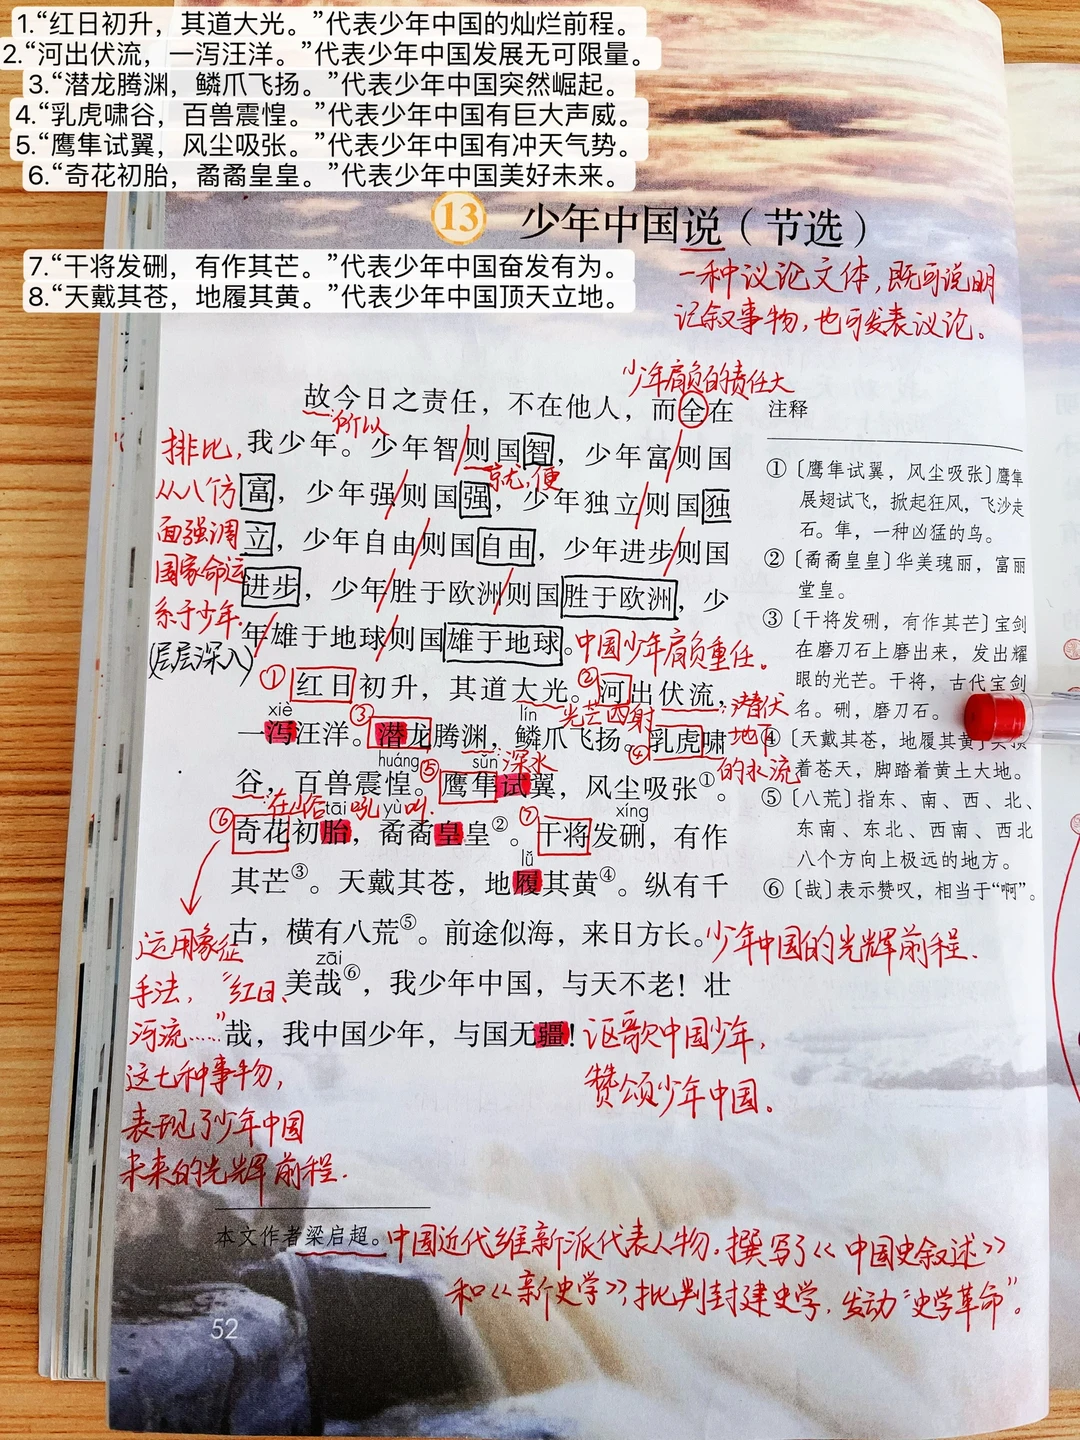 1.“红日初升，其道大光。”代表少年中国的灿烂前程。
2.“河出伏流，一泻汪洋。”代表少年中国发展无可限量。
3.“潜龙腾渊，鳞爪飞扬。”代表少年中国突然崛起。
4.“乳虎啸谷，百兽震惶。”代表少年中国有巨大声威。
5.“鹰隼试翼，风尘吸张。”代表少年中国有冲天气势。
6.“奇花初胎，矞矞皇皇。”代表少年中国美好未来。
13 少年中国说（节选）
7.“干将发硎，有作其芒。”代表少年中国奋发有为。
8.“天戴其苍，地履其黄。”代表少年中国顶天立地。
一种议论文体，既可说明
记叙事物，也可发表议论。
少年肩负的责任大
故今日之责任，不在他人，而全在
所以
我少年。少年智则国智，少年富则国
就，便
富，少年强则国强，少年独立则国独
立，少年自由则国自由，少年进步则国
进步，少年胜于欧洲则国胜于欧洲，少
年雄于地球则国雄于地球。
中国少年肩负重任。
排比，
从八个方
面强调
国家命运
系于少年.
(层层深入)
① ②
红日初升，其道大光。河出伏流，
xiè ③ lín
光芒四射
潜伏
地下
的水流
一泻汪洋。潜龙腾渊，鳞爪飞扬。乳虎啸
④
深水
huáng ⑤ sǔn
谷，百兽震惶。鹰隼试翼，风尘吸张①。
在山谷吼叫.
⑥ tāi yù ⑦ xíng
奇花初胎，矞矞皇皇②。干将发硎，有作
lǚ
其芒③。天戴其苍，地履其黄④。纵有千
古，横有八荒⑤。前途似海，来日方长。
少年中国的光辉前程.
zāi
美哉⑥，我少年中国，与天不老！壮
哉，我中国少年，与国无疆！
讴歌中国少年，
赞颂少年中国。
运用象征
手法，“红日、
河流……”
这七种事物，
表现了少年中国
未来的光辉前程.
注释
①〔鹰隼试翼，风尘吸张〕鹰隼
展翅试飞，掀起狂风，飞沙走
石。隼，一种凶猛的鸟。
②〔矞矞皇皇〕华美瑰丽，富丽
堂皇。
③〔干将发硎，有作其芒〕宝剑
在磨刀石上磨出来，发出耀
眼的光芒。干将，古代宝剑
名。硎，磨刀石。
④〔天戴其苍，地履其黄〕头顶
着苍天，脚踏着黄土大地。
⑤〔八荒〕指东、南、西、北、
东南、东北、西南、西北
八个方向上极远的地方。
⑥〔哉〕表示赞叹，相当于“啊”。
本文作者梁启超。
中国近代维新派代表人物，撰写了《中国史叙述》
和《新史学》，批判封建史学，发动“史学革命”。
52